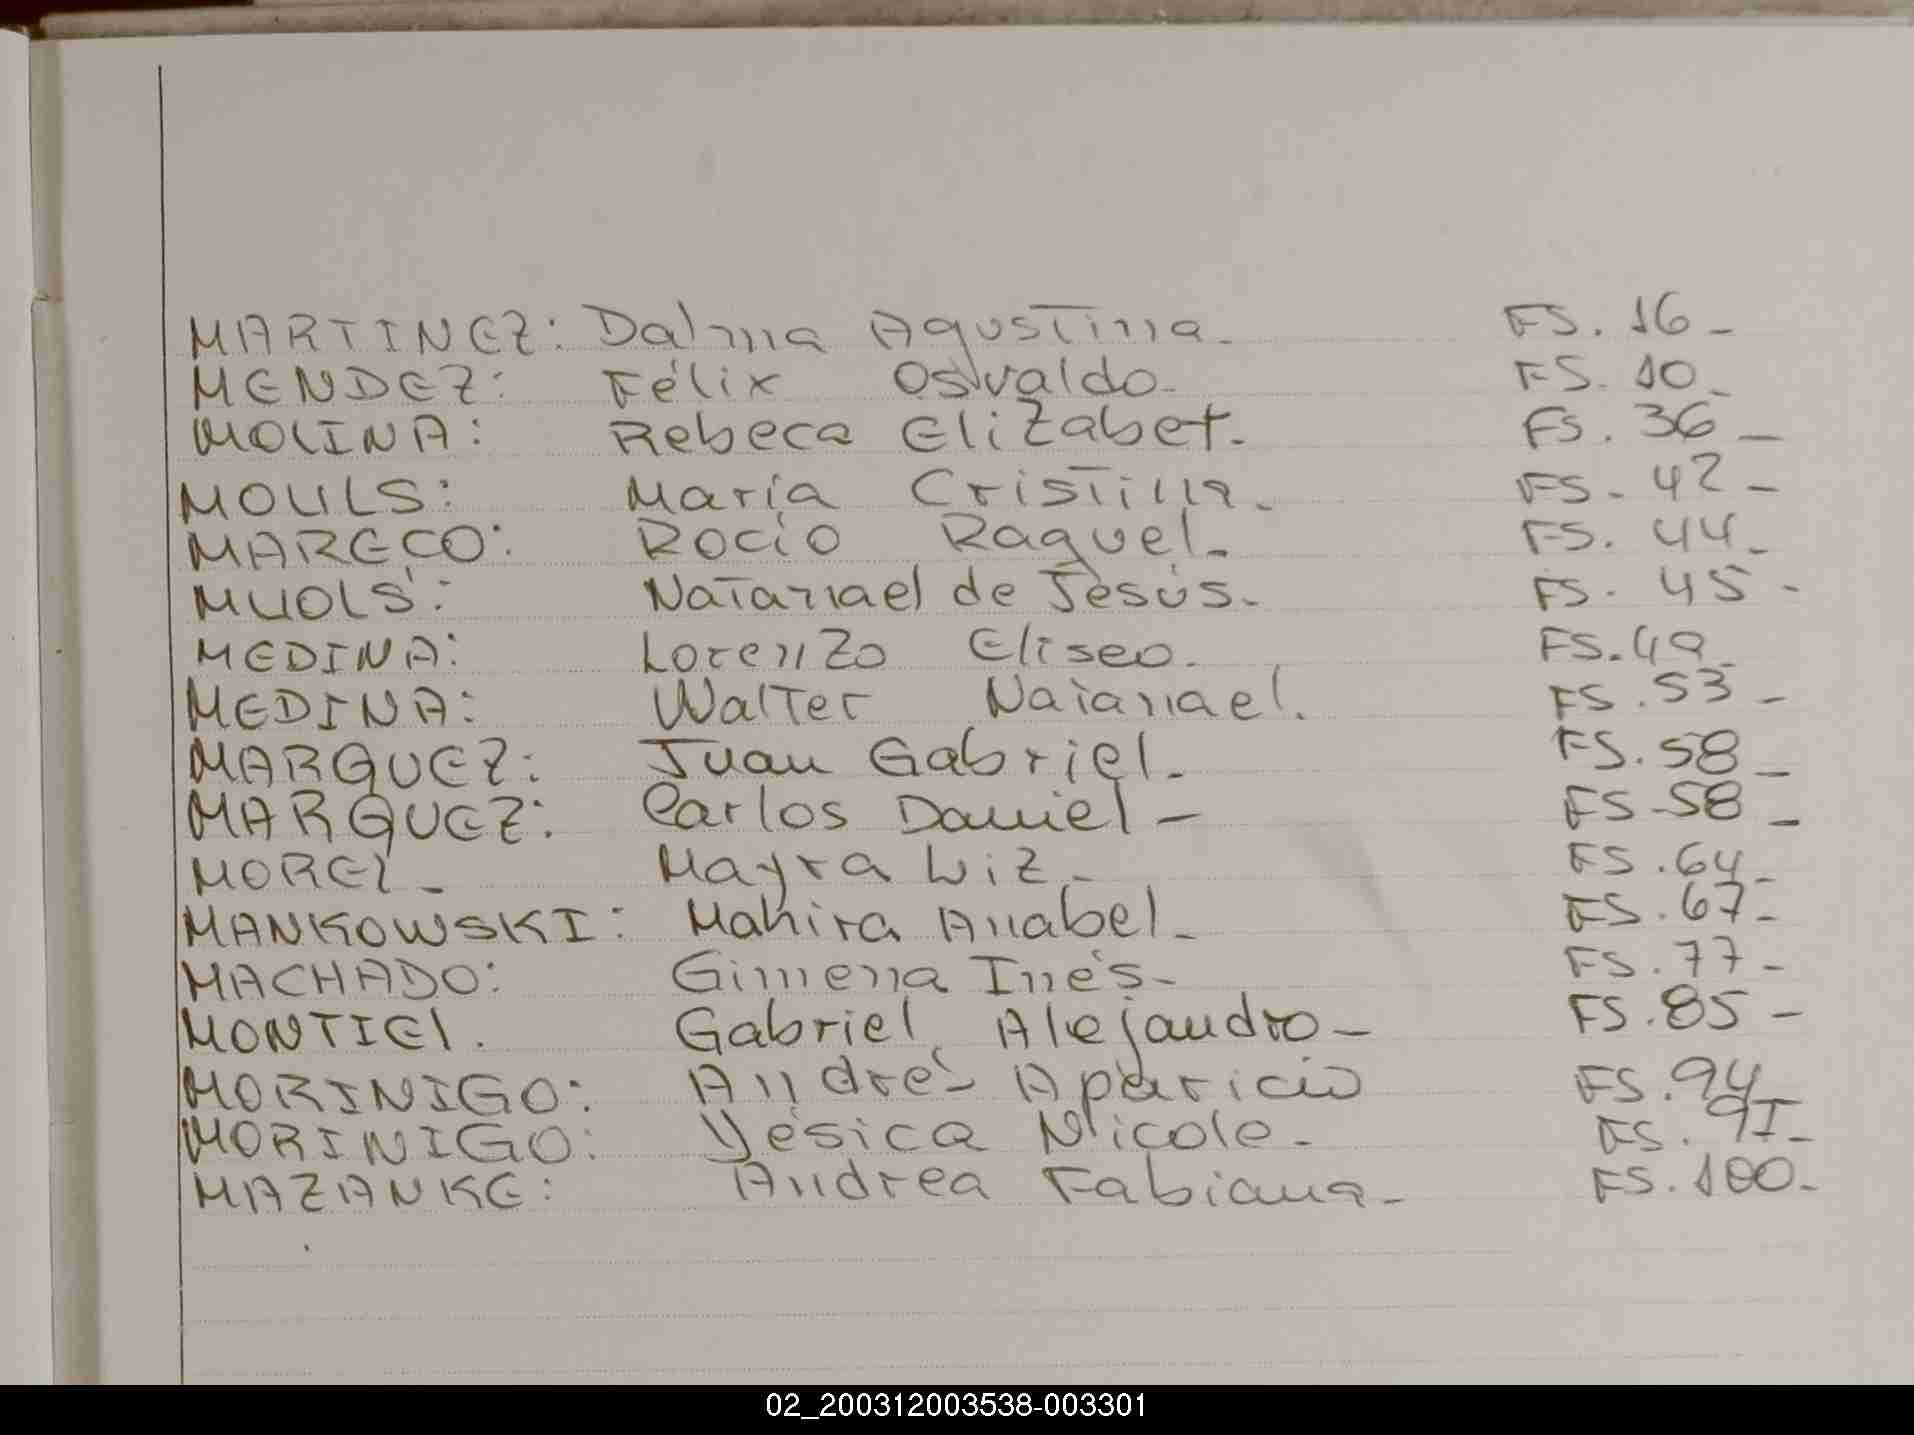 MARTINEZ: Dalma Agustina. FS. 16 -
MENDEZ: Félix Osvaldo. FS. 10 -
MOLINA: Rebeca Elizabet. FS. 36 -
MOULS: María Cristina. FS. 42 -
MARECO: Rocío Raquel. FS. 44 -
MUOLS: Natanael de Jesús. FS. 45 -
MEDINA: Lorenzo Eliseo. FS. 49 -
MEDINA: Walter Natanael. FS. 53 -
MARQUEZ: Juan Gabriel. FS. 58 -
MARQUEZ: Carlos Daniel - FS. 58 -
MOREL - Mayra Liz - FS. 64 -
MANKOWSKI: Mahira Anabel - FS. 67 -
MACHADO: Gimena Inés - FS. 77 -
MONTIEL. Gabriel Alejandro - FS. 85 -
MORINIGO: Andrés Aparicio FS. 94 -
MORINIGO: Yésica Nicole - FS. 91 -
MAZANKE: Andrea Fabiana - FS. 100 -
02_200312003538-003301